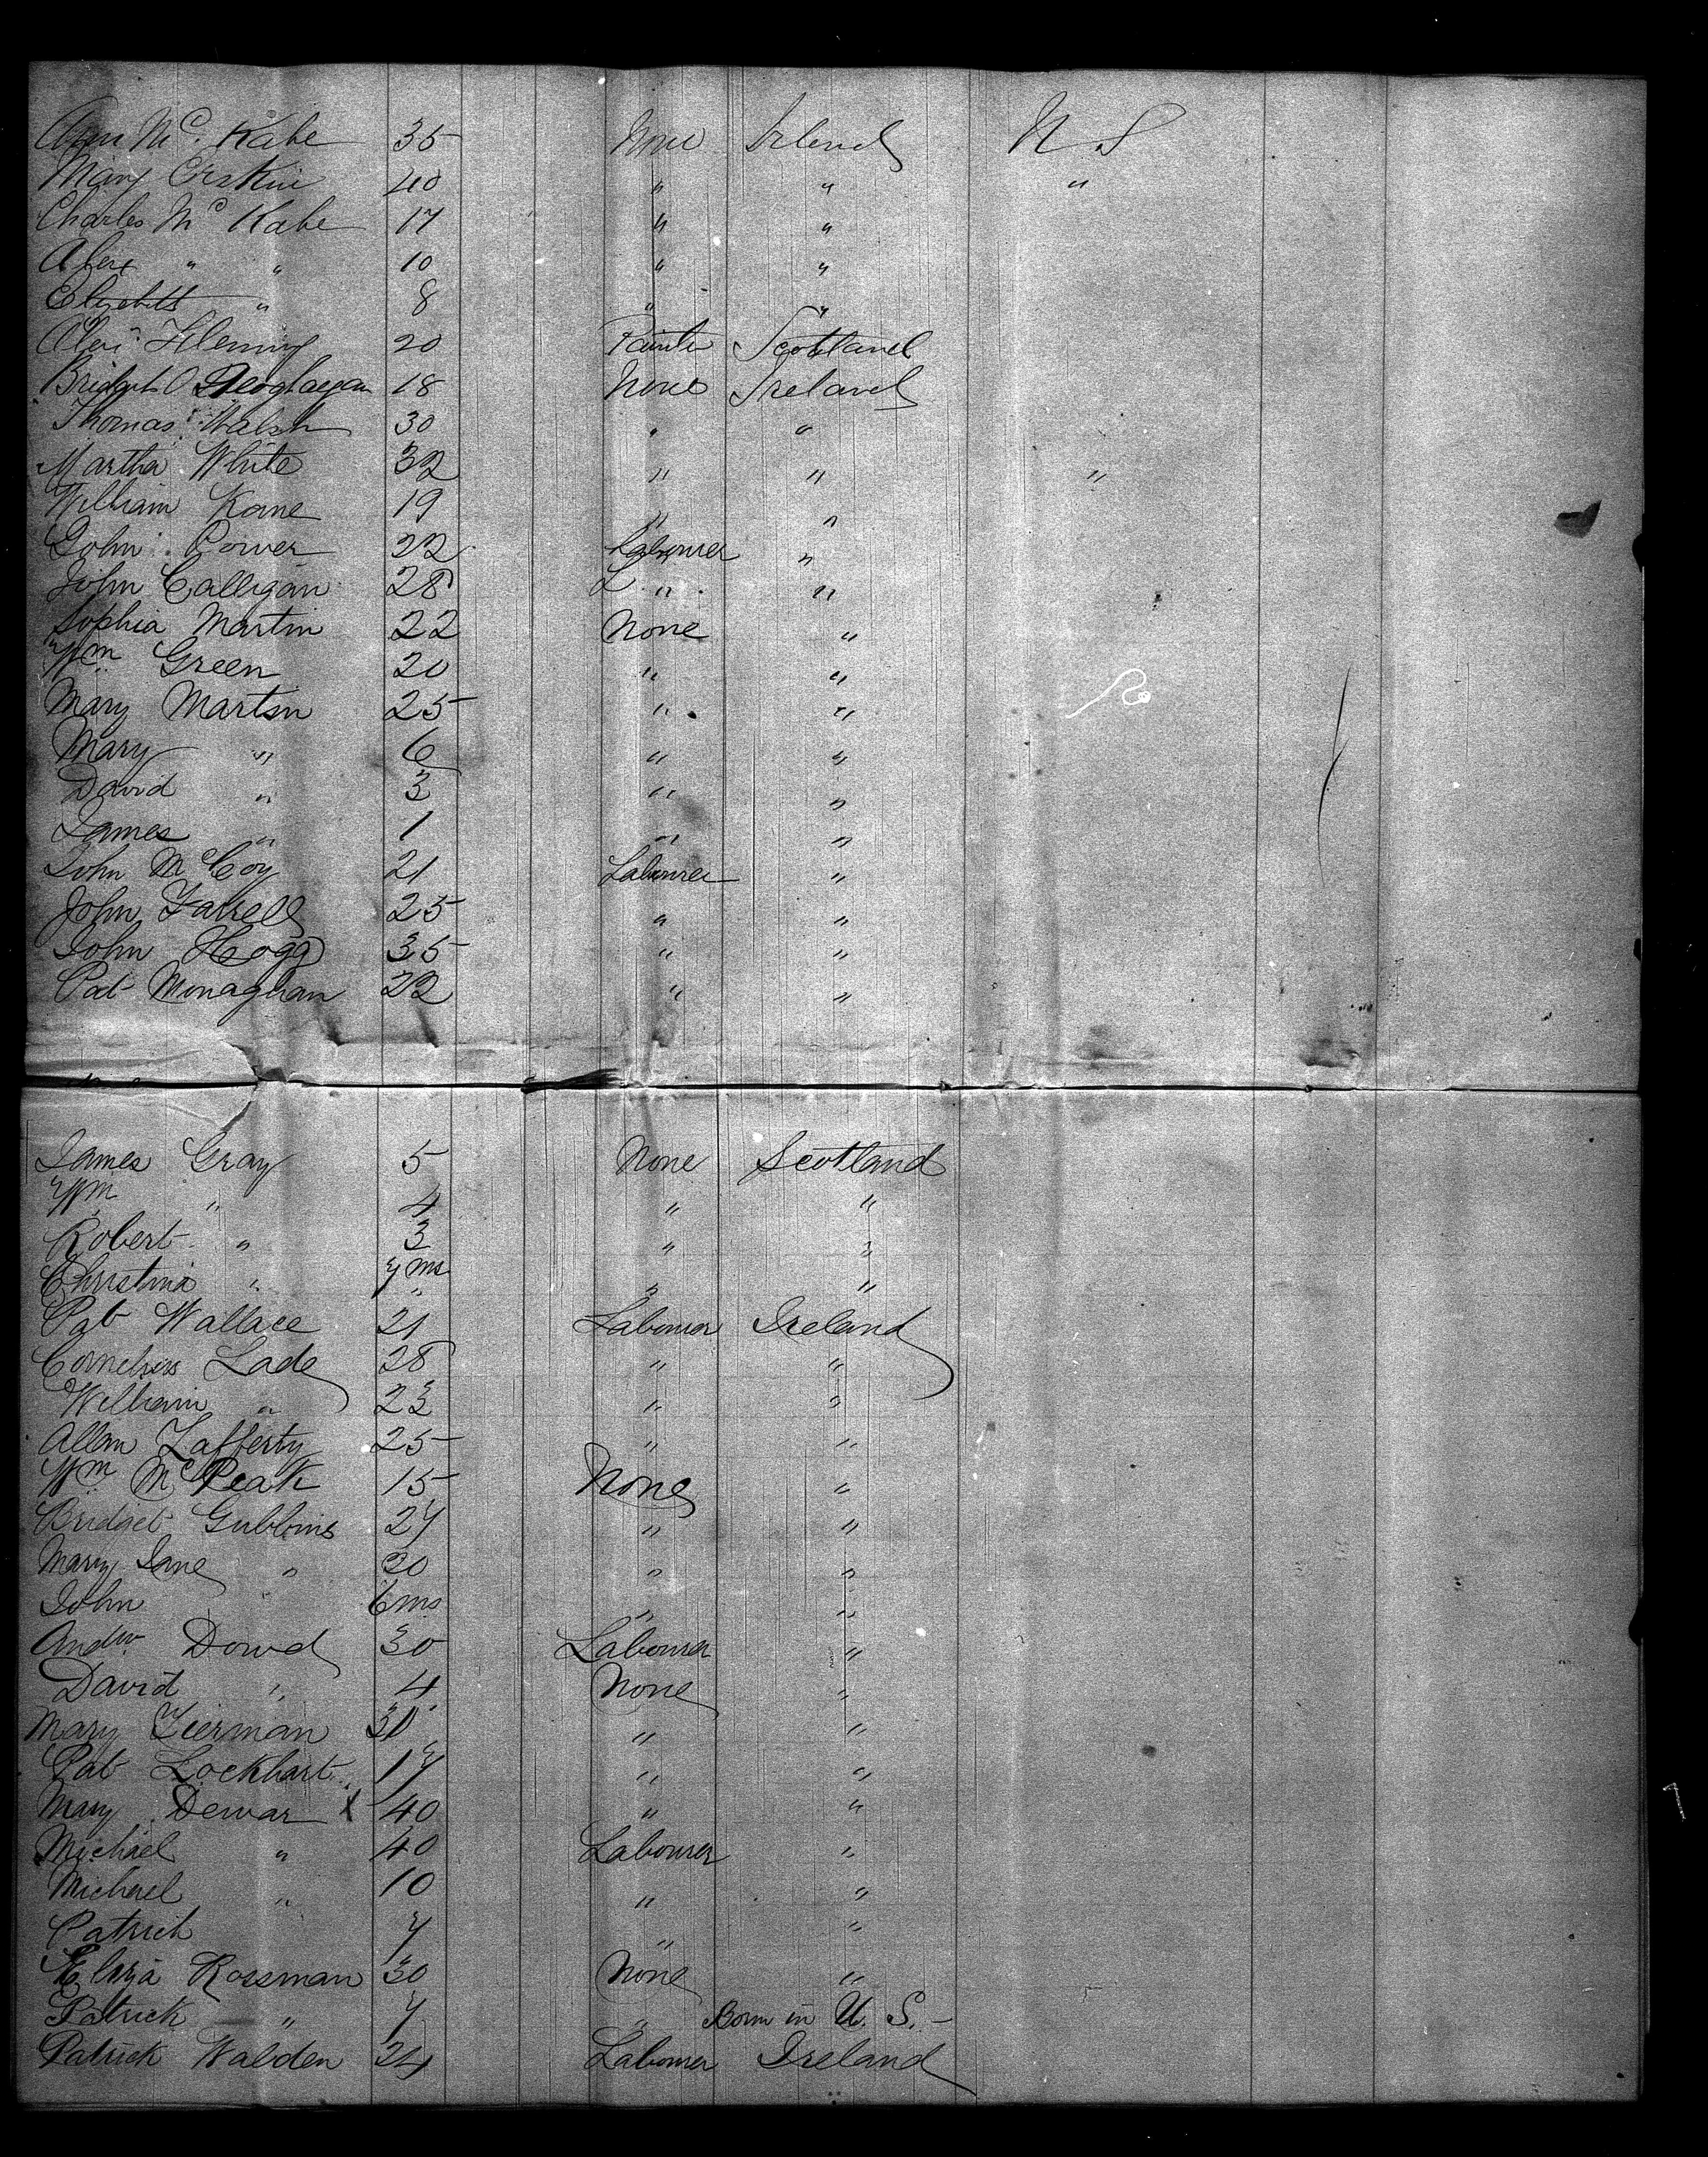 Ann Mc. Kabe 35 None Irland U.S
Mary Erskin 40 " " "
Charles Mc Kabe 17 " "
Alex " " 10 " "
Elizebitt " 8 " "
Alex Fleming 20 Painter Scotland
Bridget O 18 None Ireland
Thomas Walsh 30 " "
Martha White 32 " " "
William Kane 19 " "
John Power 22 Labourer "
John Calligan 28 L " "
Sophia Martin 22 None "
Wm Green 20 " "
Mary Martin 25 " "
Mary " 6 " "
David " 3 " "
James " 1 " "
John McCoy 21 Labourer "
John Farrell 25 " "
John Hogg 35 " "
Pat Monaghan 22 " "
James Gray 5 None Scotland
Wm " 4 " "
Robert " 3 " "
Christina " 7 ms " "
Pat Wallace 21 Labourer Ireland
Cornelius Lade 28 " "
William " 23 " "
Allan Lafferty 25 " "
Wm McPeak 15 None "
Bridget Gubbins 27 " "
Mary Jane " 20 " "
John " 6 ms " "
Andw Dowd 30 Labourer "
David " 4 None "
Mary Tierman 30 " "
Pat Lockhart 17 " "
Mary Dewar X 40 " "
Michael " 40 Labourer "
Michael " 10 " "
Patrick 7 " "
Eliza Rossman 30 None "
Patrick " 7 " Born in U. S. -
Patrick Walden 24 Labourer Ireland